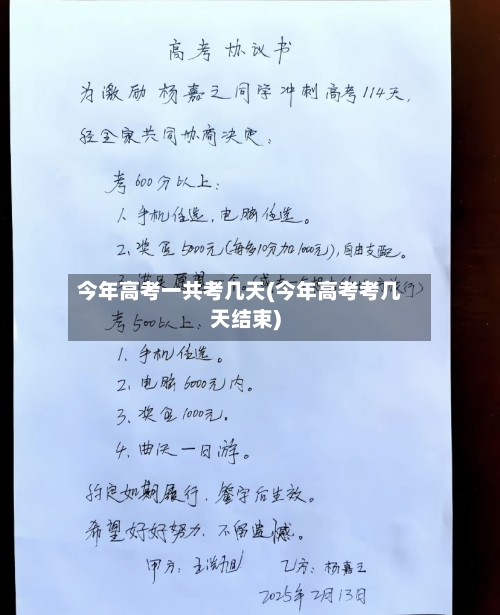 高考协议书
为激励杨嘉之同学冲刺高考114天,
经全家共同协商决定:
考600分以上:
1、手机任选,电脑任选。
2、奖金5000元(每多10分加1000元),自由支配。
今年高考一共考几天(今年高考考几
天结束)
考500以上:
1、手机任选。
2、电脑6000元内。
3、奖金1000元。
4、曲沃一日游。
约定如期履行,签字后生效。
希望好好努力,不留遗憾。
甲方: 乙方:杨嘉之
2025年2月13日